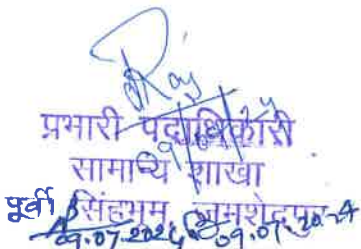 Ray
9/7/24
प्रभारी पदाधिकारी
सामान्य शाखा
पूर्वी सिंहभूम, जमशेदपुर
09.07.2024 09.07.2024